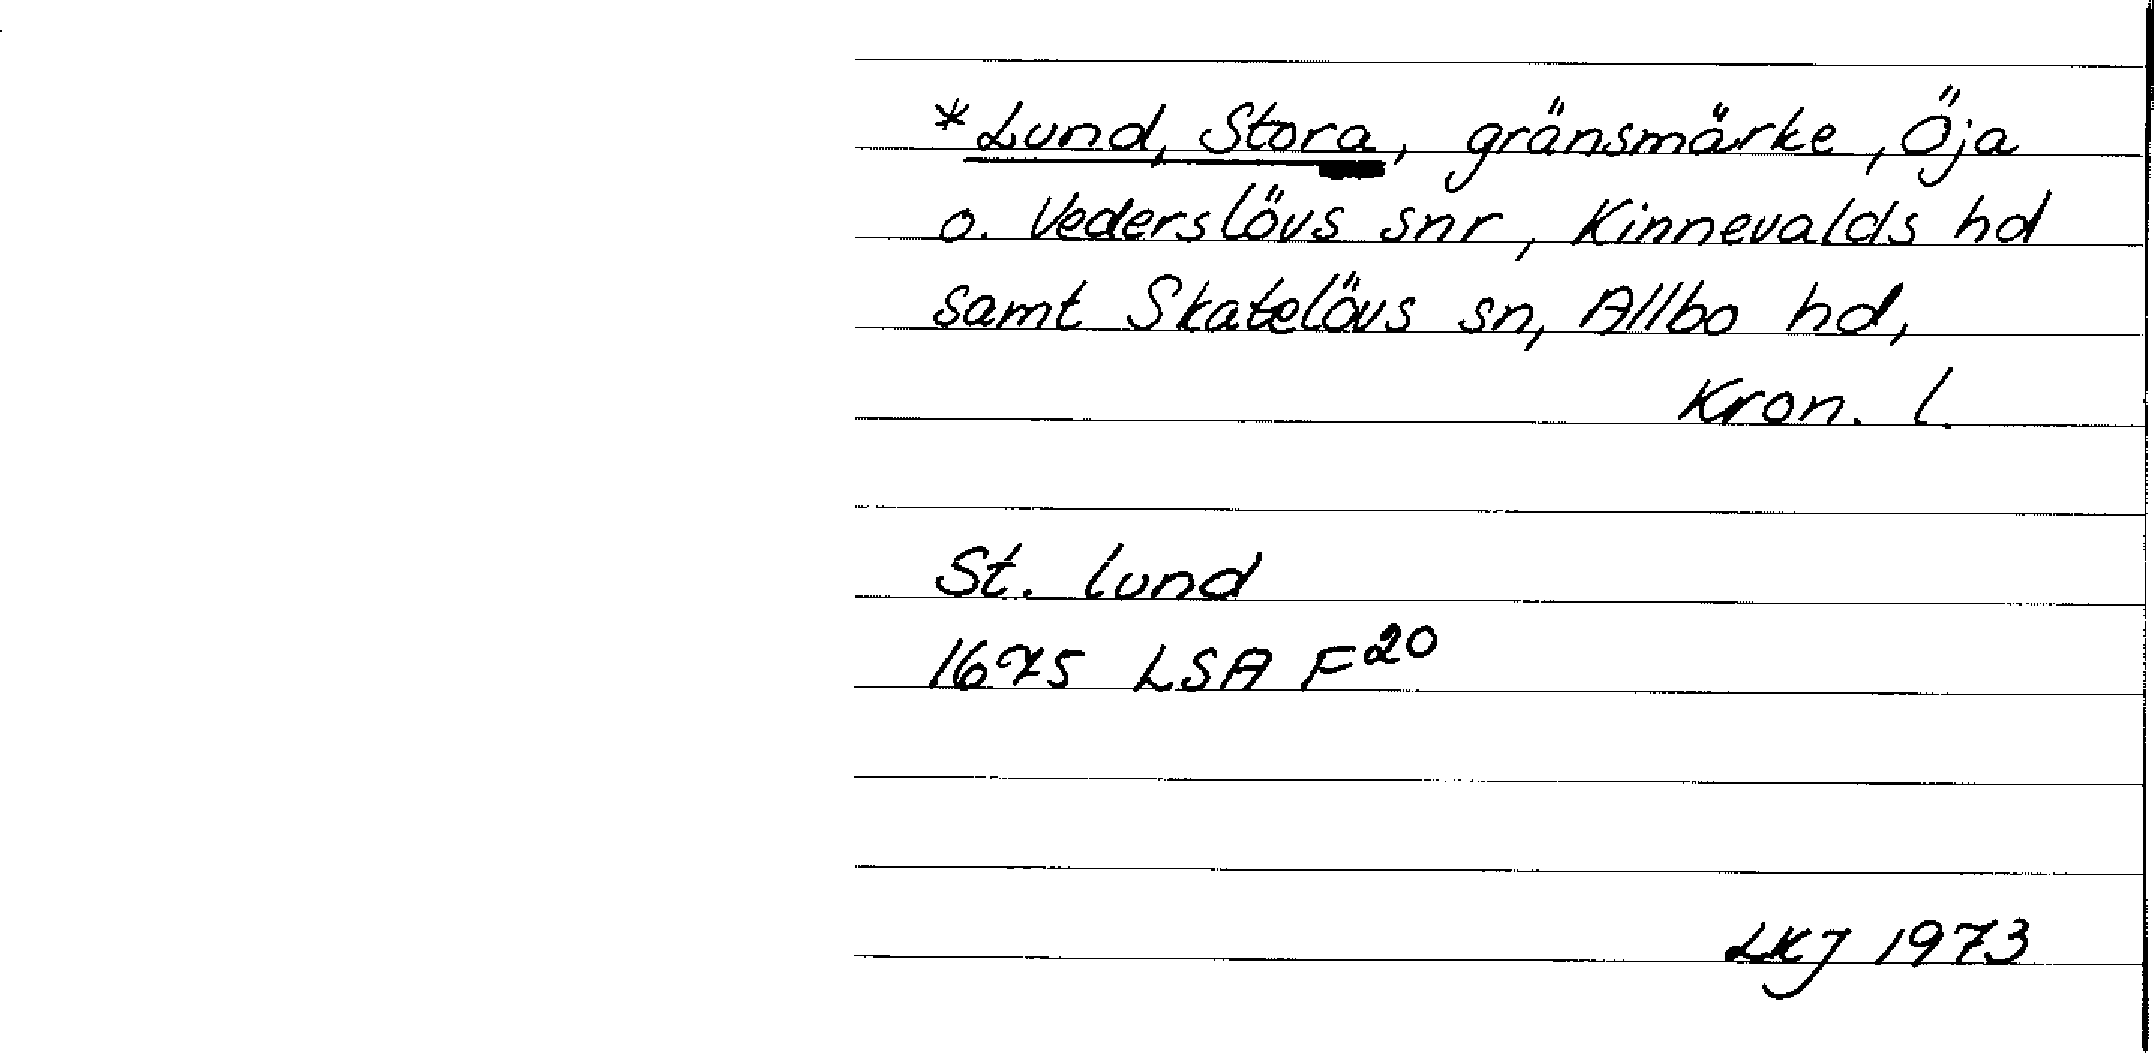 *Lund, Stora, gränsmärke, Öja
o. Vederslövs snr, Kinnevalds hd
samt Skatelövs sn, Allbo hd,
Kron. l.
St. lund
1675 LSA F20
LKJ 1973